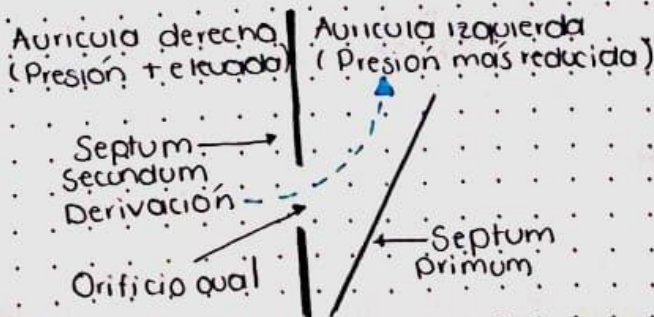 Auricula derecha
(Presión + elevada)
Auricula izquierda
(Presión más reducida)
Septum
Secundum
Derivación
Orificio oval
Septum
primum